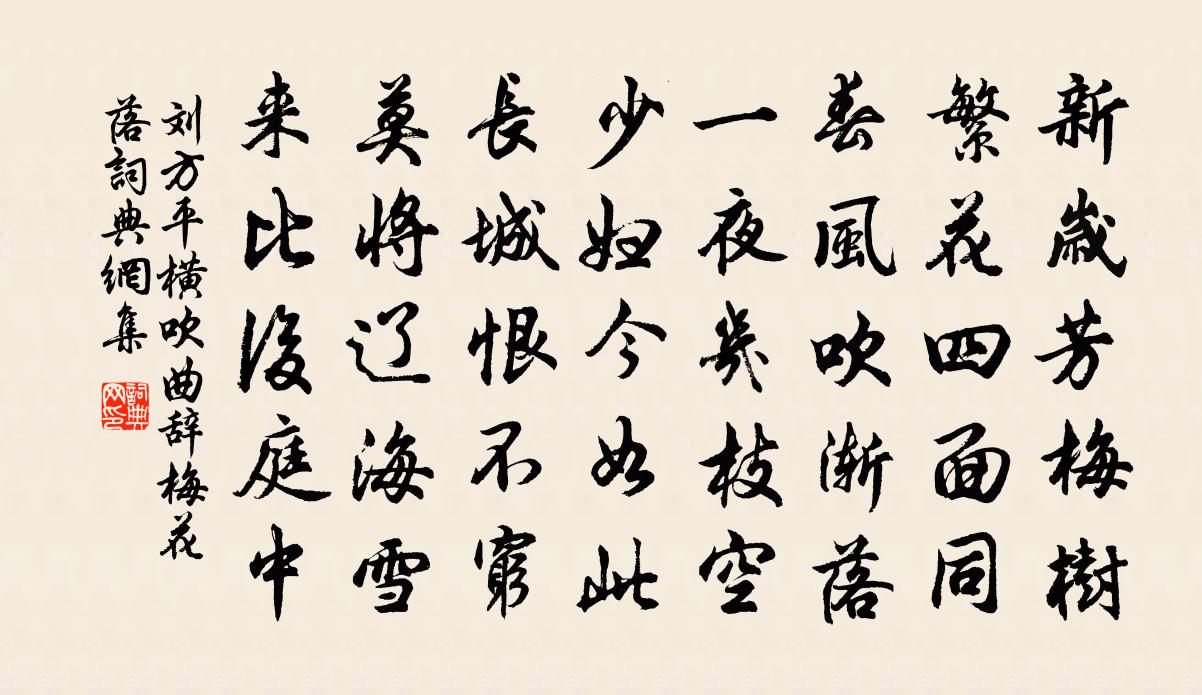 新歲芳梅樹
繁花四面同
春風吹渐落
一夜幾枝空
少妇今如此
長城恨不窮
莫將辽海雪
来比後庭中
刘方平横吹曲辞梅花
落詞典網集
詞典
网印